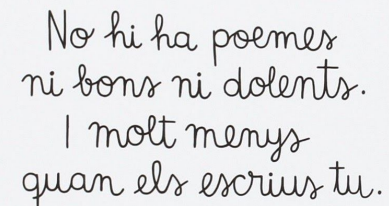 No hi ha poemes
ni bons ni dolents.
I molt menys
quan els escrius tu.